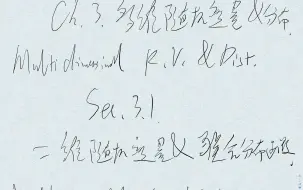 Ch. 3. 多维随机变量及分布.
Multidimensional R.V. & Dist.
Sec. 3.1.
二维随机变量及联合分布函数